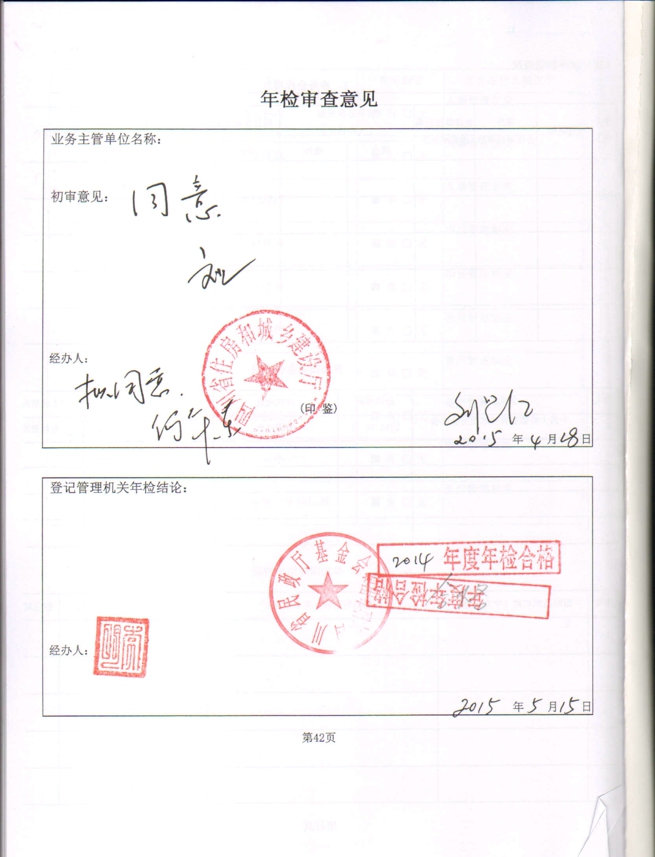 年检审查意见
业务主管单位名称：
初审意见： 同意
四川省住房和城乡建设厅
经办人：
拟同意.
(印 鉴)
2015 年 4 月 28 日
登记管理机关年检结论：
省民政厅基金会
2014 年度年检合格
年度年检合格
经办人：
2015 年 5 月 15 日
第42页